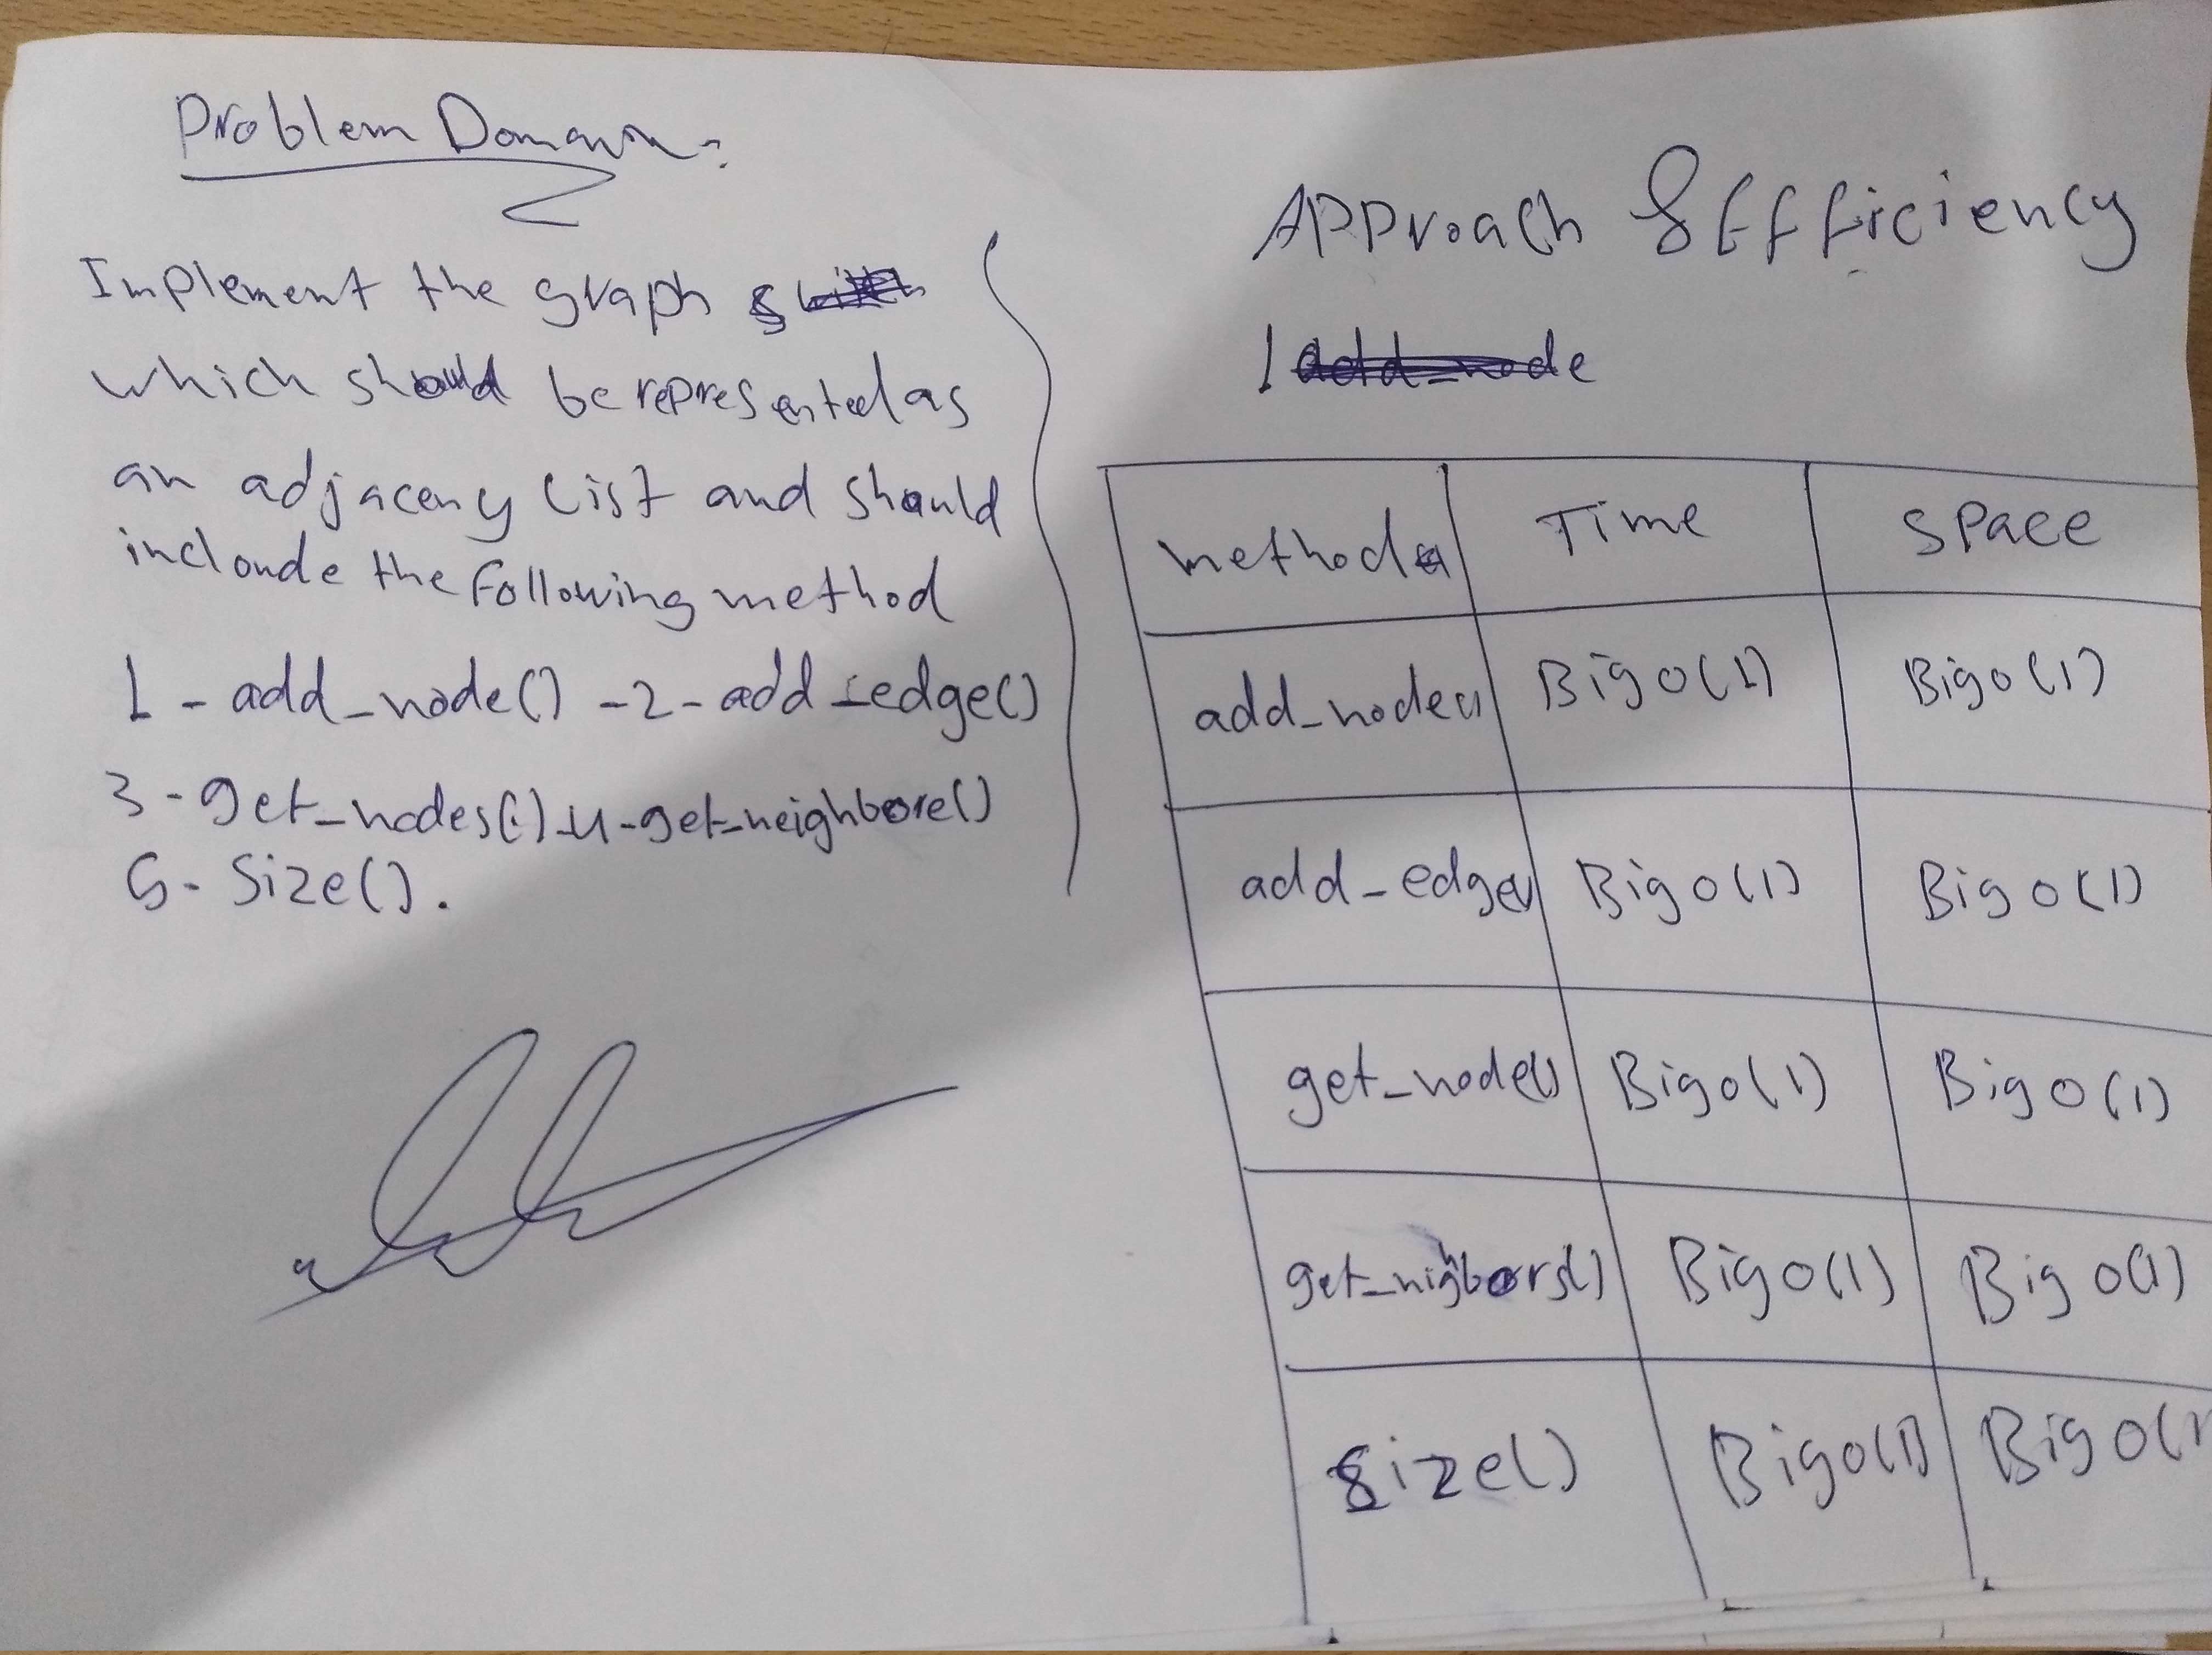 Problem Domain:
Implement the graph
which should be represented as
an adjaceny list and should
inclonde the following method
1 - add_node() - 2 - add_edge()
3 - get_nodes() - 4 - get_neighbore()
5 - Size().
Approach & Efficiency
1 add_node
method Time Space
add_node() Big O(1) Big O(1)
add_edge() Big O(1) Big O(1)
get_node() Big O(1) Big O(1)
get_nigbors() Big O(1) Big O(1)
Size() Big O(1) Big O(1